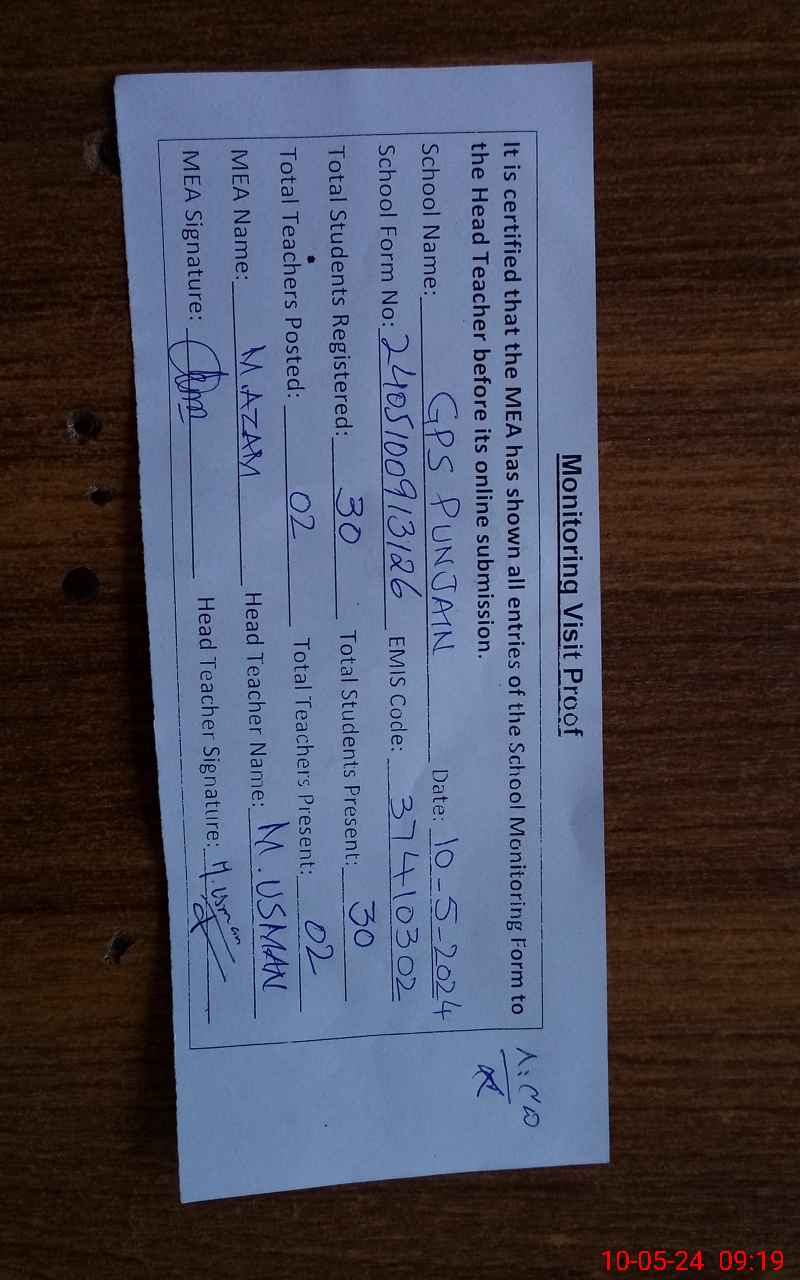 Monitoring Visit Proof
It is certified that the MEA has shown all entries of the School Monitoring Form to
the Head Teacher before its online submission.
School Name: GPS PUNJAIN Date: 10-5-2024
School Form No: 2405100913126 EMIS Code: 37410302
Total Students Registered: 30 Total Students Present: 30
Total Teachers Posted: 02 Total Teachers Present: 02
MEA Name: M.AZAM Head Teacher Name: M.USMAN
MEA Signature: Head Teacher Signature: M.Usman
10-05-24 09:19